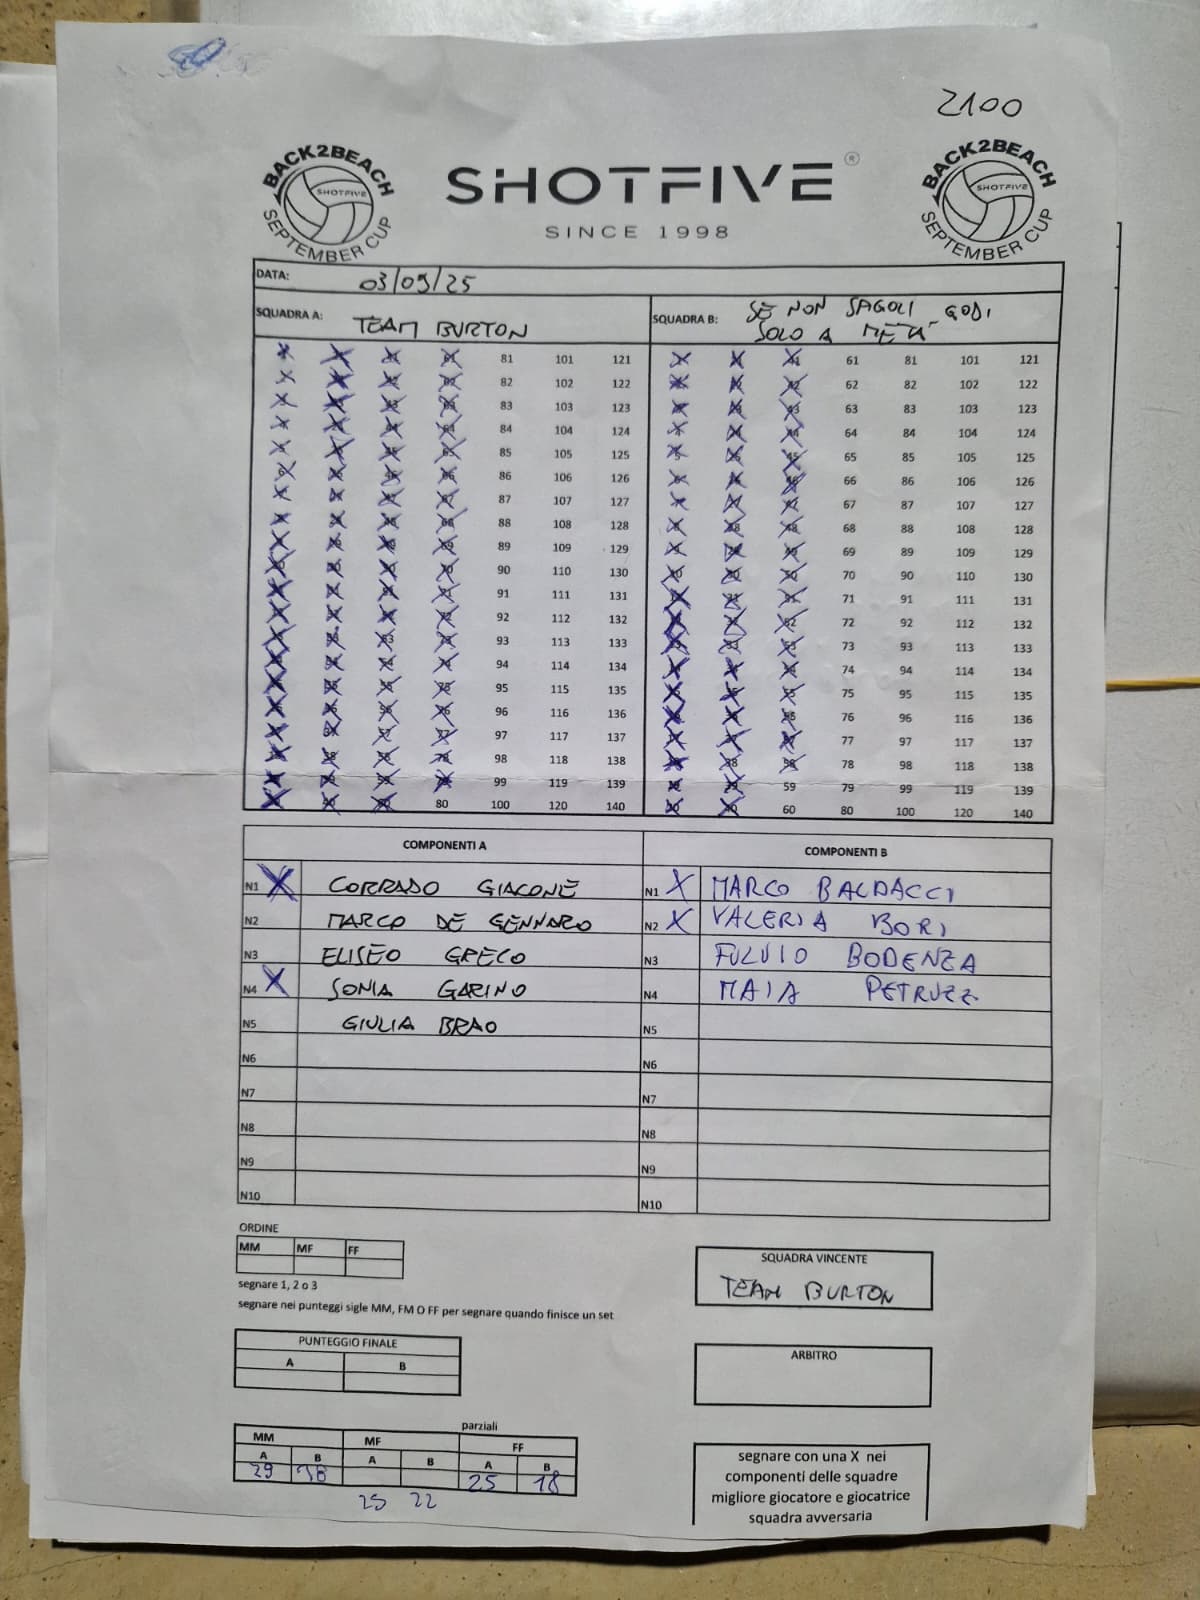 2100
BACK2BEACH
SHOTFIVE
SEPTEMBER CUP
SHOTFIVE ®
SINCE 1998
BACK2BEACH
SHOTFIVE
SEPTEMBER CUP
DATA: 03/09/25
SQUADRA A: TEAM BURTON
SQUADRA B: SE NON SAGOLI GODI
SOLO A METÀ
81 101 121 61 81 101 121
82 102 122 62 82 102 122
83 103 123 63 83 103 123
84 104 124 64 84 104 124
85 105 125 65 85 105 125
86 106 126 66 86 106 126
87 107 127 67 87 107 127
88 108 128 68 88 108 128
89 109 129 69 89 109 129
90 110 130 70 90 110 130
91 111 131 71 91 111 131
92 112 132 72 92 112 132
93 113 133 73 93 113 133
94 114 134 74 94 114 134
95 115 135 75 95 115 135
96 116 136 76 96 116 136
97 117 137 77 97 117 137
98 118 138 78 98 118 138
99 119 139 59 79 99 119 139
80 100 120 140 60 80 100 120 140
COMPONENTI A COMPONENTI B
N1 X CORRADO GIACONE N1 X MARCO BALDACCI
N2 MARCO DE GENNARO N2 X VALERIA BORI
N3 ELISEO GRECO N3 FULVIO BODENZA
N4 X SONIA GARINO N4 MAIA PETRUZZ
N5 GIULIA BRAO N5
N6 N6
N7 N7
N8 N8
N9 N9
N10 N10
ORDINE
MM MF FF
segnare 1, 2 o 3
segnare nei punteggi sigle MM, FM O FF per segnare quando finisce un set
SQUADRA VINCENTE
TEAM BURTON
PUNTEGGIO FINALE
A B
ARBITRO
parziali
MM MF FF
A B A B A B
29 18 25 18
25 22
segnare con una X nei
componenti delle squadre
migliore giocatore e giocatrice
squadra avversaria